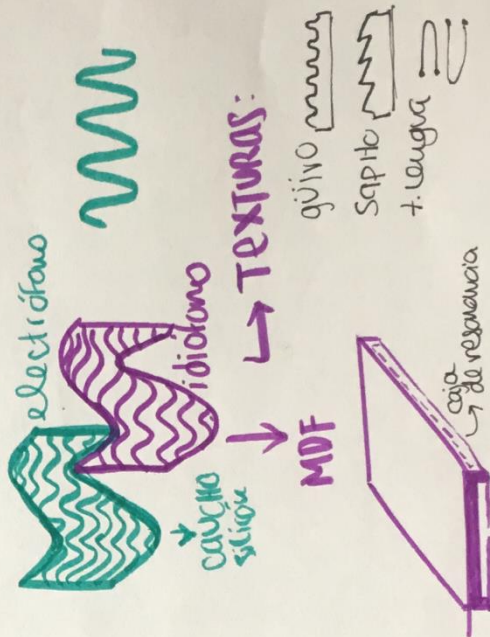 electrófono
idiófono
↓
caucho
silicona
↓
MDF
↳ TEXTURAS:
güiro
sapito
t. lengua
↳ caja
de resonancia